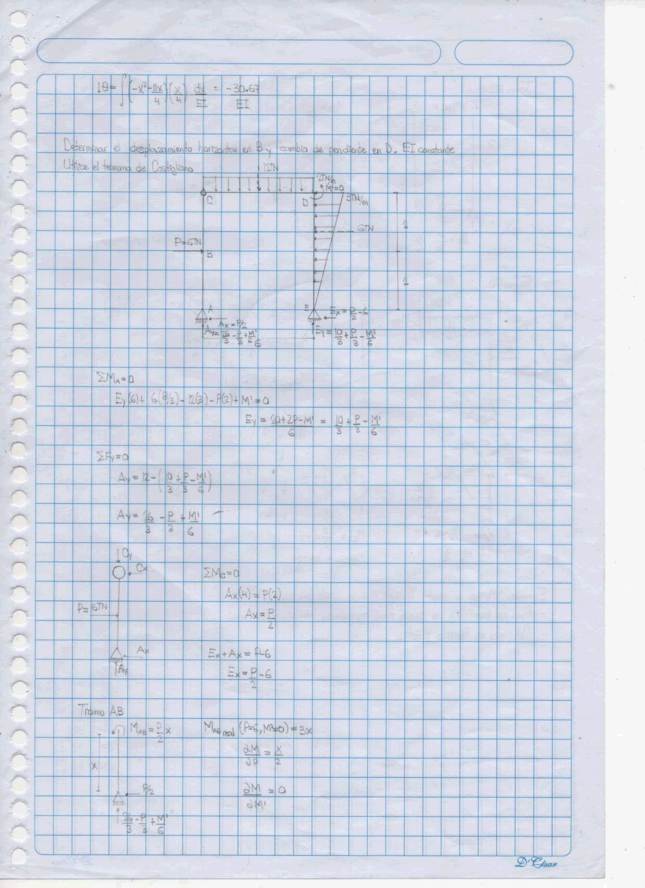 1θ = ∫ (-x²-11x/4)(x/4) dx/EI = -30.67/EI
Determinar el desplazamiento horizontal en B y cambio de pendiente en D. EI constante
Utilice el teorema de Castigliano
12TN
2TN/m
M'=0
C
D
3TN/m
6TN
P=6TN
B
2
2
A
E
Ax = P/2
Ay = 26/3 - P/3 + M'/6
Ex = P/2 - 6
Ey = 10/3 + P/3 - M'/6
ΣMA=0
Ey(6) + 6(8/3) - 12(3) - P(2) + M' = 0
Ey = 20+2P-M'/6 = 10/3 + P/3 - M'/6
ΣFy=0
Ay = 12 - (10/3 + P/3 - M'/6)
Ay = 26/3 - P/3 + M'/6
Cy
Cx
ΣMC=0
Ax(4) = P(2)
P=6TN
Ax = P/2
Ax
Ex + Ax = P-6
Ay
Ex = P/2 - 6
Tramo AB
MAB = P/2 x
MAB real (P=6, M'=0) = 3x
∂M/∂P = x/2
x
P/2
∂M/∂M' = 0
26/3 - P/3 + M'/6
D'Clase